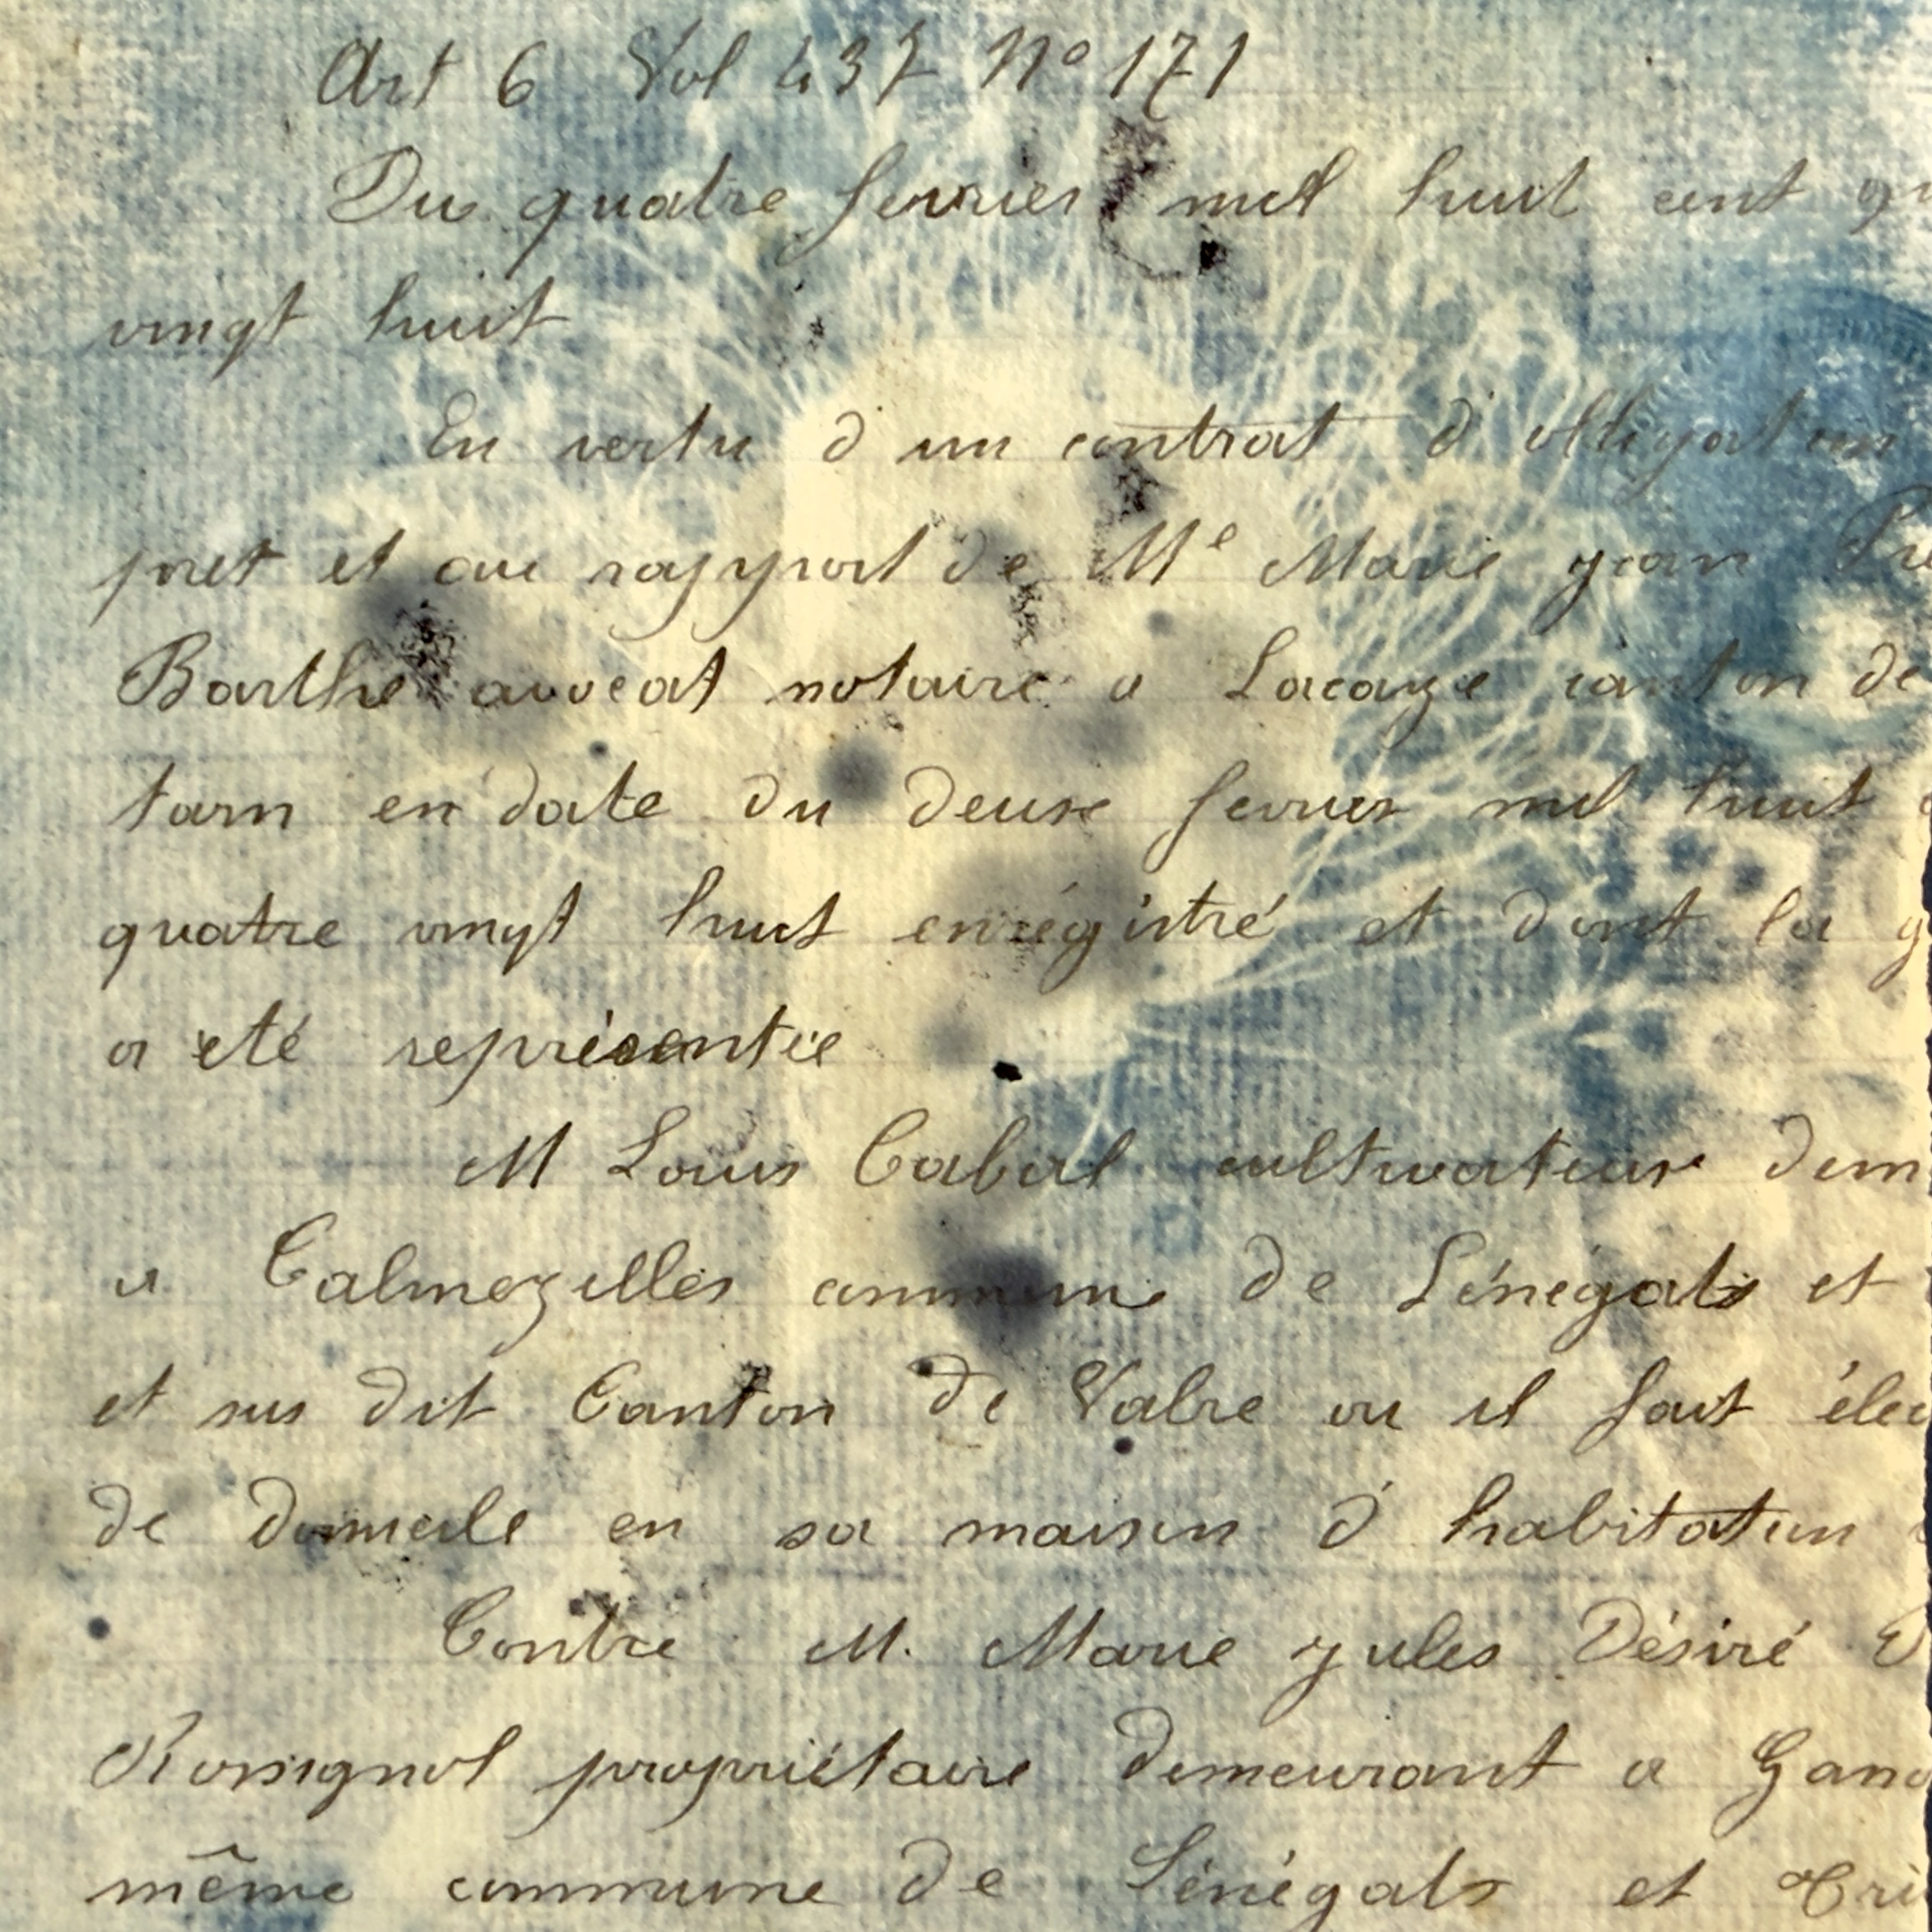 Art 6 Vol 437 No 171
Du quatre fevrier mil huit cent
vingt huit
En vertu d'un contrat d'obligation
pret et au rapport de Me Marie Jean
Barthe avocat notaire a Lacaze canton de
tarn en date du deux fevrier mil huit
quatre vingt huit enrégistré et dont la
a été représentée
M Louis Cabal cultivateur dem
a Calmezelles commune de Sénégats et
et sus dit Canton de Vabre ou il fait élec
de domicile en sa maison d'habitation
Contre M. Marie Jules Désiré
Rossignol propriétaire demeurant a
même commune de Sénégats et